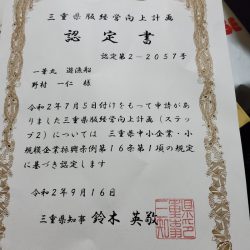 三重県版経営向上計画
認定書
認定第2-2057号
一筆丸 遊漁船
野村 一仁 様
令和2年7月5日付けをもって申請があ
りました三重県版経営向上計画（ステッ
プ2）については 三重県中小企業・小
規模企業振興条例第16条第1項の規定
に基づき認定します
令和2年9月16日
三重県知事 鈴木 英敬